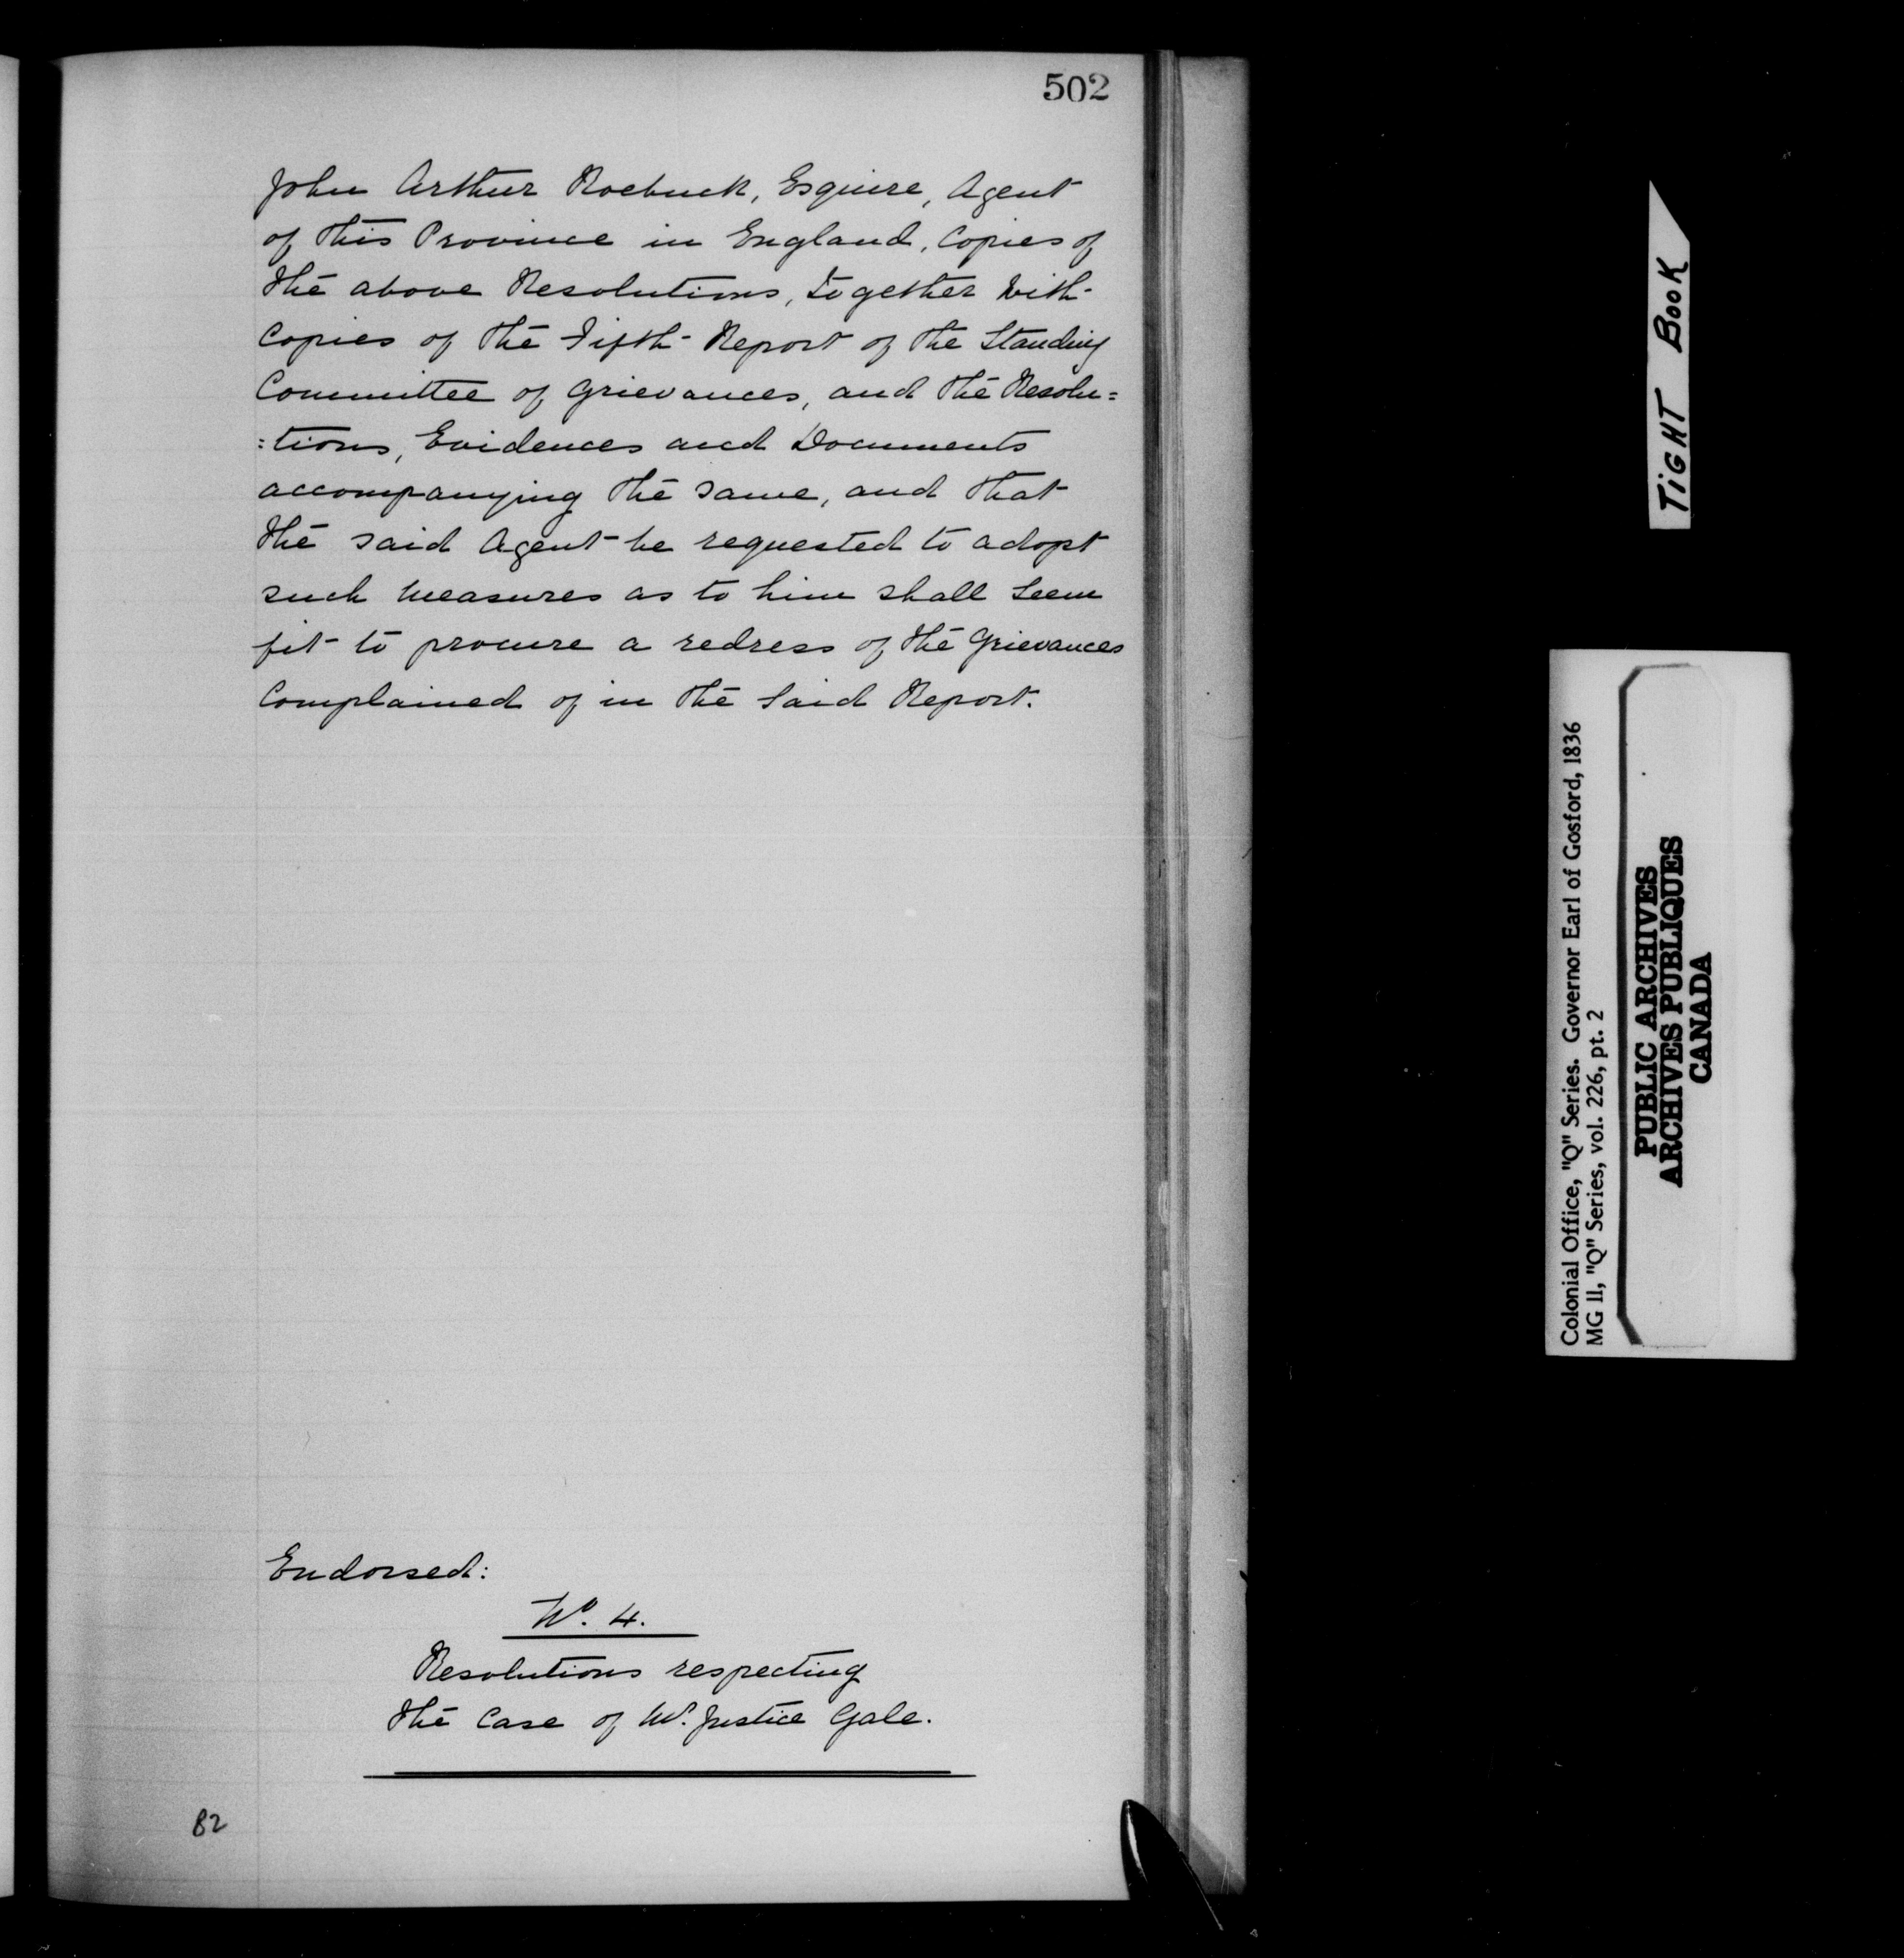 502
John Arthur Roebuck, Esquire, Agent
of this Province in England, Copies of
the above Resolutions, together with
Copies of the Fifth Report of the Standing
Committee of Grievances, and the Resolu=
=tions, Evidences and Documents
accompanying the same, and that
the said Agent be requested to adopt
such measures as to him shall seem
fit to procure a redress of the Grievances
Complained of in the said Report.
Endorsed:
No. 4.
Resolutions respecting
the Case of Mr. Justice Gale.
82
TIGHT BOOK
Colonial Office, "Q" Series. Governor Earl of Gosford, 1836
MG 11, "Q" Series, vol. 226, pt. 2
PUBLIC ARCHIVES
ARCHIVES PUBLIQUES
CANADA